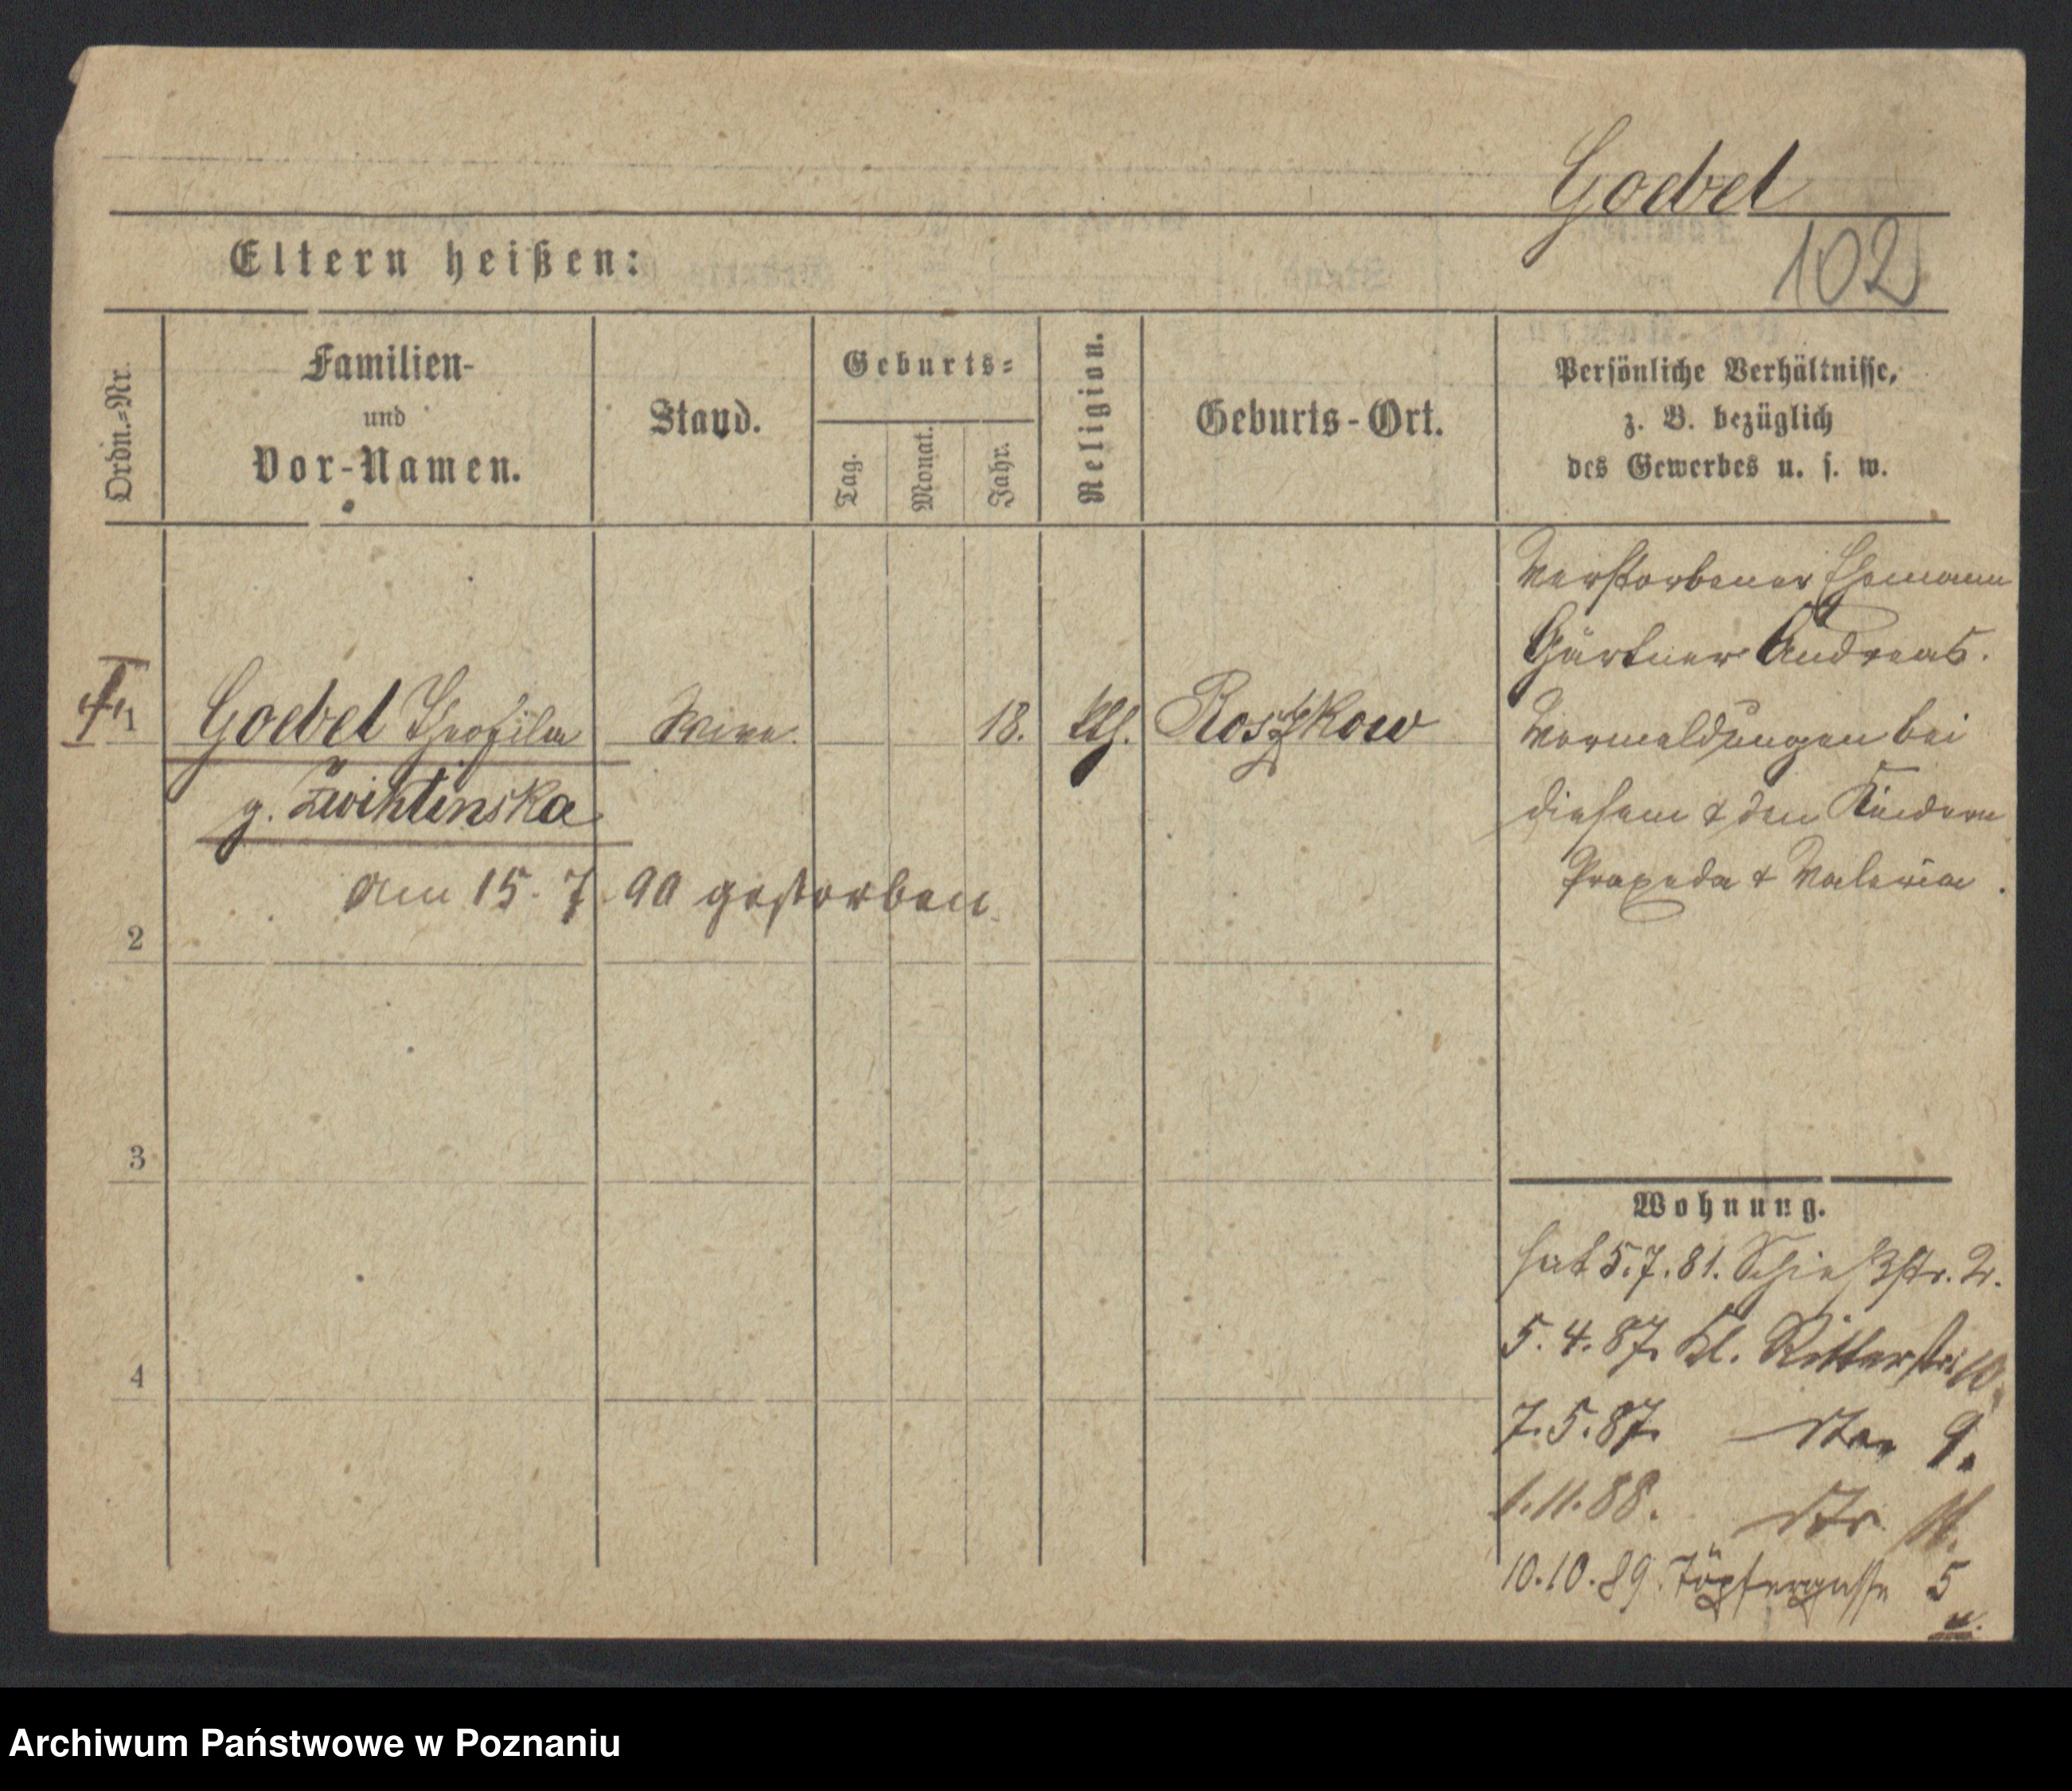 Goebel
102
Eltern heißen:
Ordn.-Nr.
Familien-
und
Vor-Namen.
Stand.
Geburts-
Tag.
Monat.
Jahr.
Religion.
Geburts-Ort.
Persönliche Verhältnisse,
z. B. bezüglich
des Gewerbes u. s. w.
Verstorbener Ehemann
Gärtner Andreas.
1 Goebel Theofila 18. kth. Roszkow
Vormeldungen bei
g. Zwihlinska
diesem & den Kindern
am 15. 7. 90 gestorben.
Praxeda & Valeria.
2
3
4
Wohnung.
hat 5.7.81. Schießstr. 2.
5.4.87. Kl. Ritterstr. 10.
7.5.87. 9.
1.11.88.
10.10.89. Töpfergasse 5
Archiwum Państwowe w Poznaniu